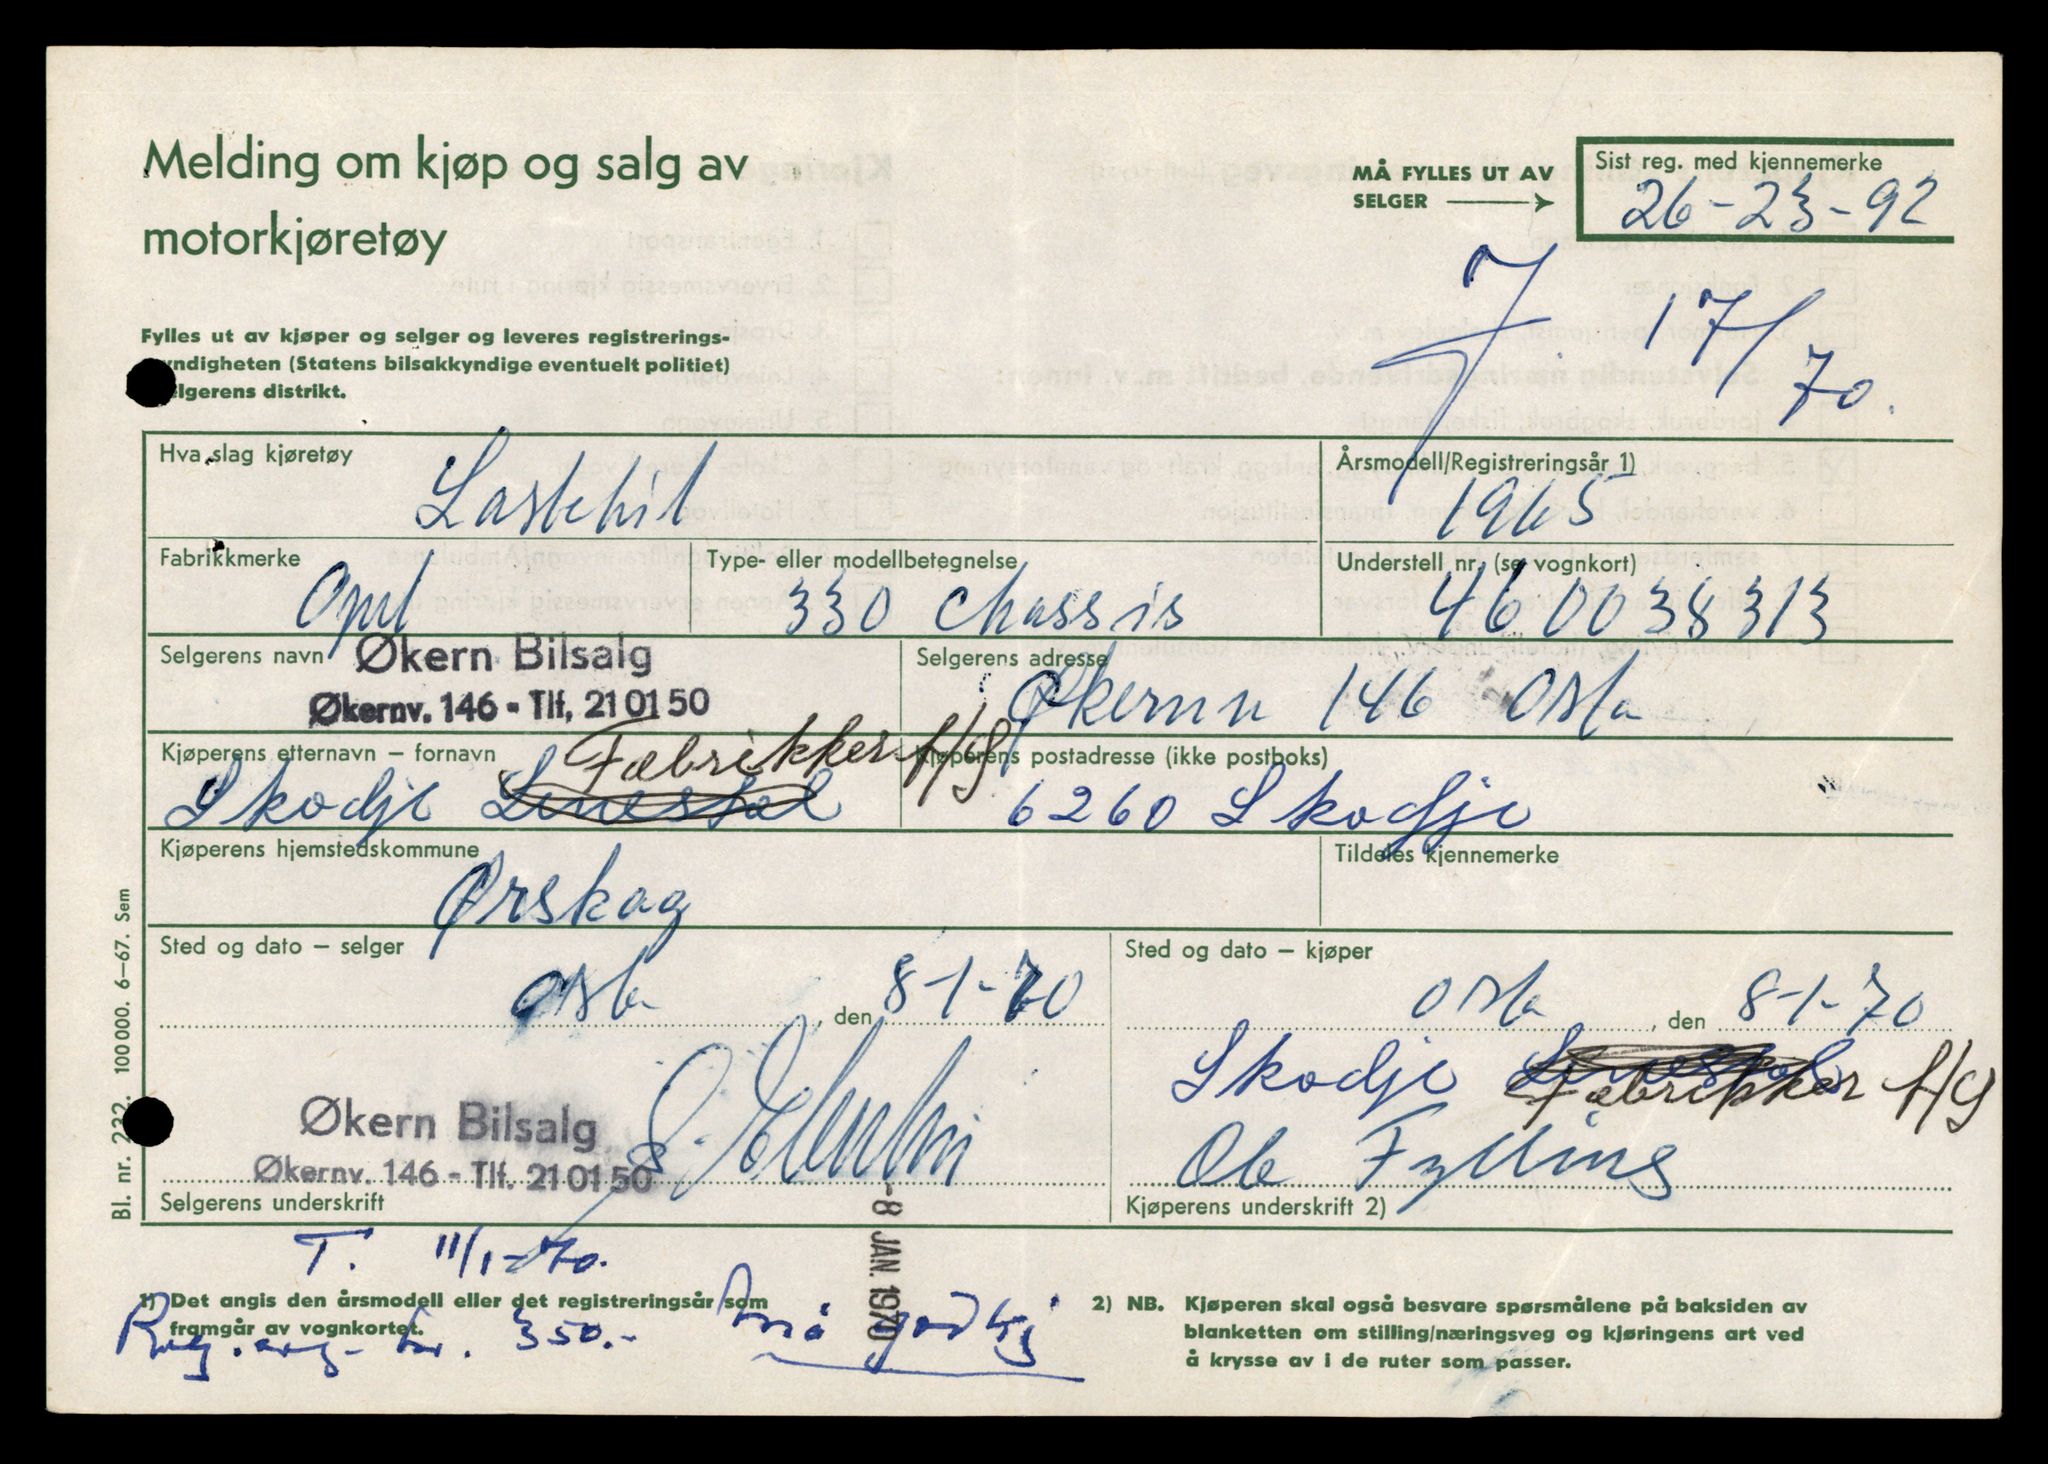 Melding om kjøp og salg av
motorkjøretøy
MÅ FYLLES UT AV
SELGER
Sist reg. med kjennemerke
26-23-92
17/
70.
Fylles ut av kjøper og selger og leveres registrerings-
yndigheten (Statens bilsakkyndige eventuelt politiet)
elgerens distrikt.
Hva slag kjøretøy
Lastebil
Årsmodell/Registreringsår 1)
1965
Fabrikkmerke
Opel
Type- eller modellbetegnelse
330 chassis
Understell nr. (se vognkort)
460038313
Selgerens navn
Økern Bilsalg
Økernv. 146 - Tlf. 21 01 50
Selgerens adresse
146 Oslo
Kjøperens etternavn – fornavn
Skodje Fabrikker A/S
Kjøperens postadresse (ikke postboks)
6260 Skodje
Kjøperens hjemstedskommune
Ørskog
Tildeles kjennemerke
Sted og dato – selger
Oslo, den 8-1-70
Sted og dato – kjøper
Oslo, den 8-1-70
Skodje Fabrikker A/S
Økern Bilsalg
Økernv. 146 - Tlf. 21 01 50
Selgerens underskrift
Ole Fylling
Kjøperens underskrift 2)
-8 JAN. 1970
T. 11/1-70.
1) Det angis den årsmodell eller det registreringsår som
framgår av vognkortet.
Reg.avg. kr. 350.- må godkj
2) NB. Kjøperen skal også besvare spørsmålene på baksiden av
blanketten om stilling/næringsveg og kjøringens art ved
å krysse av i de ruter som passer.
Bl. nr. 232. 100 000. 6–67. Sem